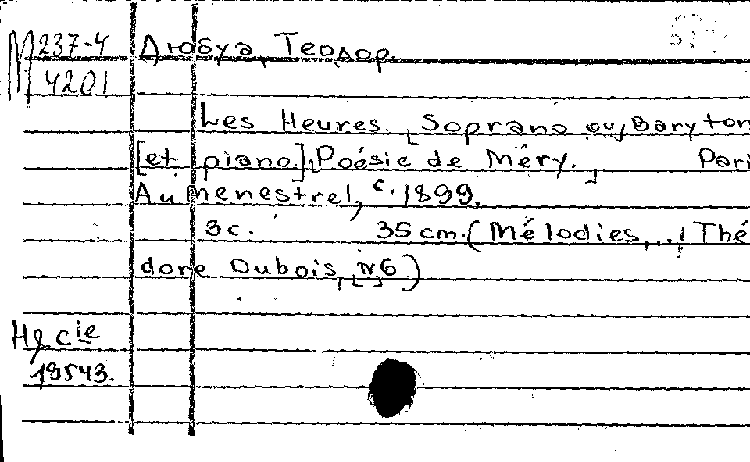 М 237-4 Дюбуа, Теодор.
4201
Les Heures. [Soprano ou] Baryton
[et piano]. Poésie de Méry. Pari
Au menestrel, c. 1899.
3 c. 35 cm. (Mélodies,.. / Thé
dore Dubois, [N 6])
H & Cie
19543.